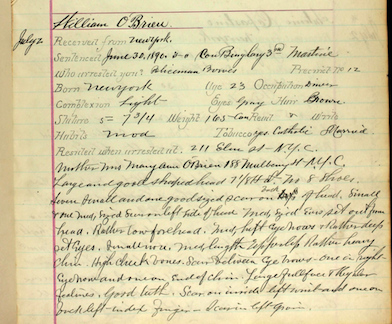 William O'Brien
July 2
Received from New York.
Sentenced June 30, 1890. 2-0 Con Burglary 3rd Martine
Who arrested you: Policeman Precinct 12
Born New York Age 23 Occupation
Complexion Light Eyes Gray Hair Brown
Stature 5= 7 3/4 Weight 165 Can Read & Write
Habits Mod Tobacco yes Catholic Married
Resided when arrested at 211 Elm St N.Y.C.
Mother Mrs Mary Ann O'Brien 188 Mulberry St N.Y.C.
Large and good shaped head 7 1/8 H 8 Shoes.
small and one good sized scar on of head. Small
Med. sized Ears on left side of head. Med. sized Ears set out from
head. Rather low forehead. Med. heft Eyebrows & Rather deep
set Eyes. Small nose. Med. length upper lip Rather heavy
Chin. High Cheek bones. Scar between Eyebrows - one in right
Eyebrow and one on End of chin. Large full face & Regular
features. Good teeth. Scar on inside left wrist and one on
back left index finger - Scar in left groin.